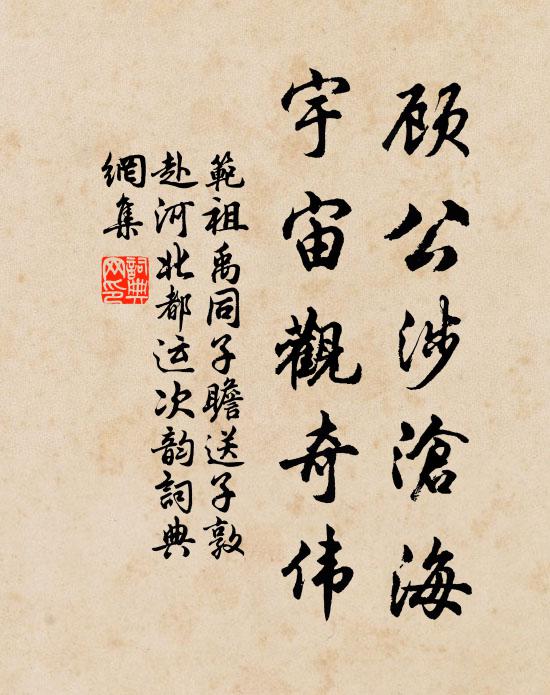 顾公涉滄海
宇宙觀奇伟
範祖禹同子瞻送子敦
赴河北都运次韵詞典
網集
詞典
网印